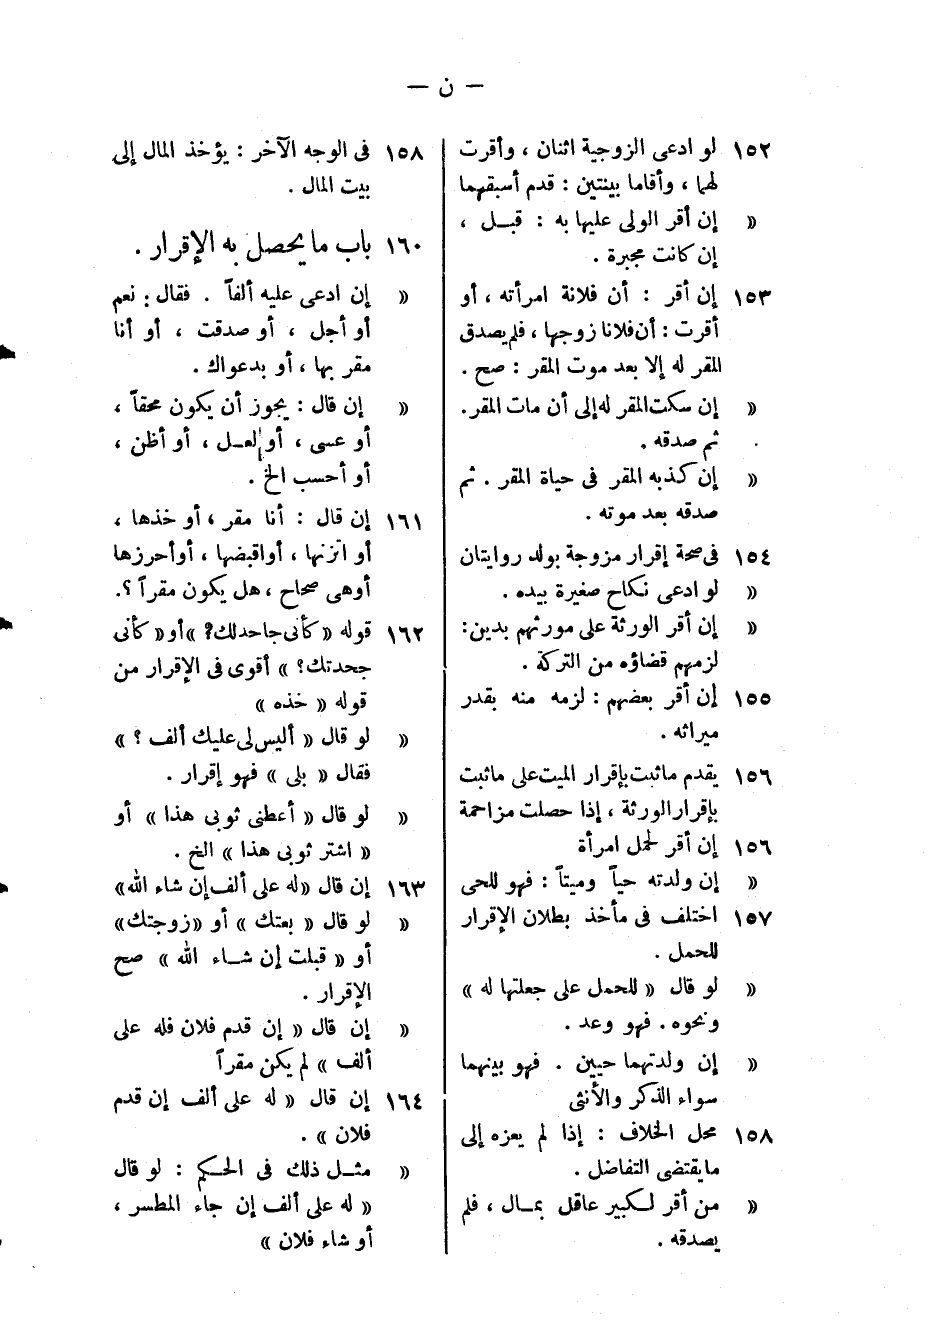 — ن —
١٥٢ لو ادعى الزوجية اثنان ، وأقرت
لهما ، وأقاما بينتين : قدم أسبقهما
« إن أقر الولى عليها به : قبل ،
إن كانت مجبرة .
١٥٣ إن أقر : أن فلانة امرأته ، أو
أقرت : أن فلانا زوجها ، فلم يصدق
المقر له إلا بعد موت المقر : صح .
« إن سكت المقر له إلى أن مات المقر.
ثم صدقه .
« إن كذبه المقر فى حياة المقر . ثم
صدقه بعد موته .
١٥٤ فى صحة إقرار مزوجة بولد روايتان
« لو ادعى نكاح صغيرة بيده .
« إن أقر الورثة على مورثهم بدين :
لزمهم قضاؤه من التركة .
١٥٥ إن أقر بعضهم : لزمه منه بقدر
ميراثه .
١٥٦ يقدم ما ثبت بإقرار الميت على ما ثبت
بإقرار الورثة ، إذا حصلت مزاحمة
١٥٦ إن أقر لحمل امرأة
« إن ولدته حياً وميتاً : فهو للحى
١٥٧ اختلف فى مأخذ بطلان الإقرار
للحمل .
« لو قال « للحمل على جعلتها له »
ونحوه . فهو وعد .
« إن ولدتهما حيين . فهو بينهما
سواء الذكر والأنثى
١٥٨ محل الخلاف : إذا لم يعزه إلى
ما يقتضى التفاضل .
« من أقر لكبير عاقل بمال ، فلم
يصدقه .
١٥٨ فى الوجه الآخر : يؤخذ المال إلى
بيت المال .
١٦٠ باب ما يحصل به الإقرار .
« إن ادعى عليه ألفاً . فقال : نعم
أو أجل ، أو صدقت ، أو أنا
مقر بها ، أو بدعواك .
« إن قال : يجوز أن يكون محقاً ،
أو عسى ، أو لعل ، أو أظن ،
أو أحسب الخ .
١٦١ إن قال : أنا مقر ، أو خذها ،
أو اتزنها ، أو اقبضها ، أو أحرزها
أو هى صحاح ، هل يكون مقراً ؟.
١٦٢ قوله « كأنى جاحد لك؟ » أو « كأنى
جحدتك؟ » أقوى فى الإقرار من
قوله « خذه »
« لو قال « أليس لى عليك ألف ؟ »
فقال « بلى » فهو إقرار .
« لو قال « أعطنى ثوبى هذا » أو
« اشتر ثوبى هذا » الخ .
١٦٣ إن قال « له على ألف إن شاء الله »
« لو قال « بعتك » أو « زوجتك »
أو « قبلت إن شاء الله » صح
الإقرار .
« إن قال « إن قدم فلان فله على
ألف » لم يكن مقراً
١٦٤ إن قال « له على ألف إن قدم
فلان » .
« مثل ذلك فى الحكم : لو قال
« له على ألف إن جاء المطر ،
أو شاء فلان »